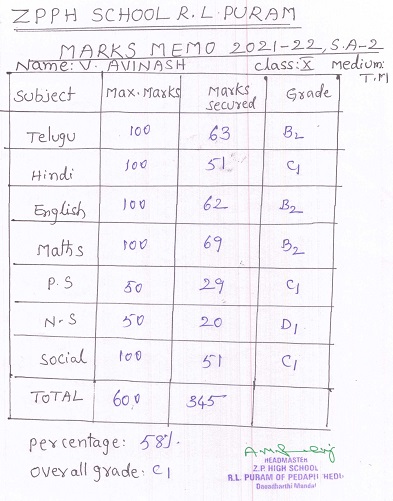 ZPPH SCHOOL R.L.PURAM
MARKS MEMO 2021-22, S.A-2
Name: V. AVINASH class: X Medium: T.M
Subject Max.Marks Marks secured Grade
Telugu 100 63 B2
Hindi 100 51 C1
English 100 62 B2
Maths 100 69 B2
P.S 50 29 C1
N.S 50 20 D1
Social 100 51 C1
TOTAL 600 345
percentage: 58%.
overall grade: C1
HEADMASTER
Z.P. HIGH SCHOOL
R.L. PURAM OF PEDAPU HEDI
Mandal